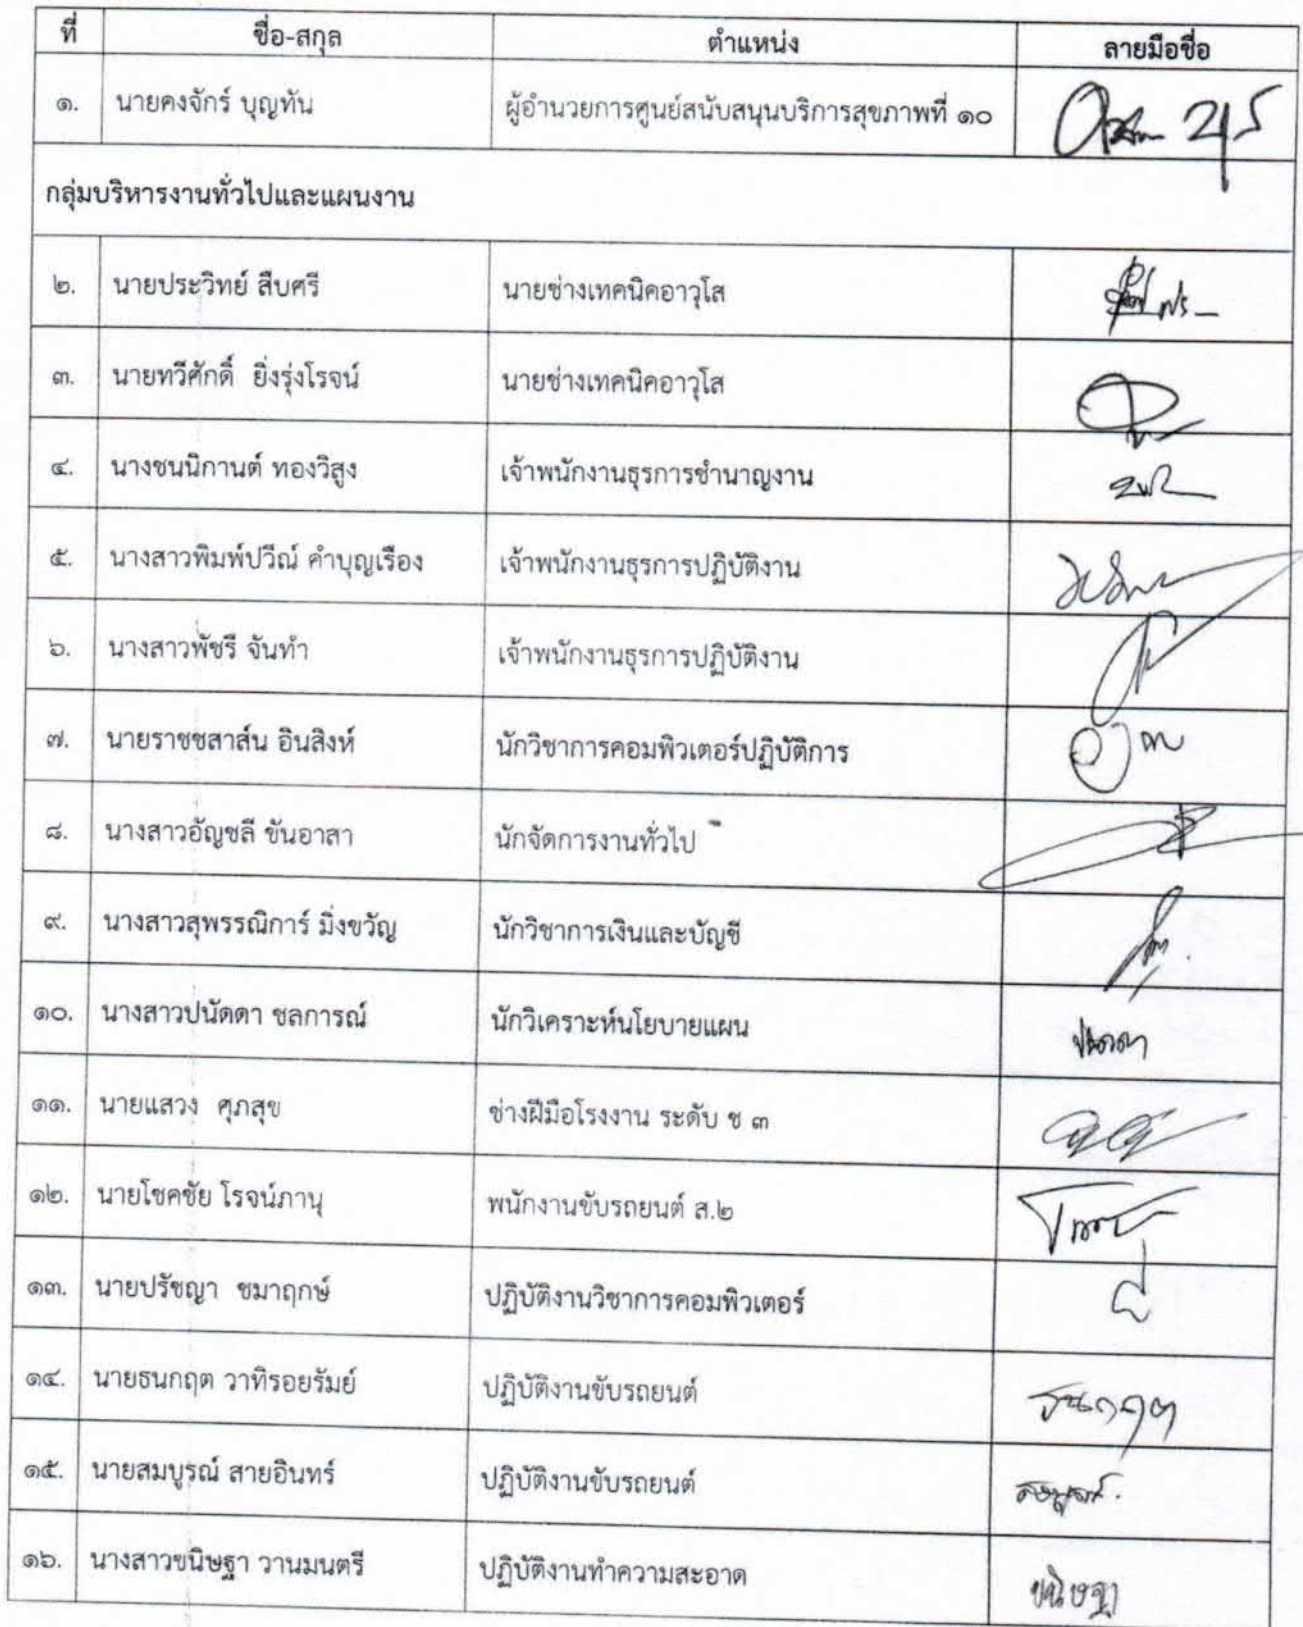 ที่ ชื่อ-สกุล ตำแหน่ง ลายมือชื่อ
๑. นายคงจักร์ บุญทัน ผู้อำนวยการศูนย์สนับสนุนบริการสุขภาพที่ ๑๐
กลุ่มบริหารงานทั่วไปและแผนงาน
๒. นายประวิทย์ สืบศรี นายช่างเทคนิคอาวุโส
๓. นายทวีศักดิ์ ยิ่งรุ่งโรจน์ นายช่างเทคนิคอาวุโส
๔. นางชนนิกานต์ ทองวิสูง เจ้าพนักงานธุรการชำนาญงาน
๕. นางสาวพิมพ์ปวีณ์ คำบุญเรือง เจ้าพนักงานธุรการปฏิบัติงาน
๖. นางสาวพัชรี จันทำ เจ้าพนักงานธุรการปฏิบัติงาน
๗. นายราชชสาส์น อินสิงห์ นักวิชาการคอมพิวเตอร์ปฏิบัติการ
๘. นางสาวอัญชลี ขันอาสา นักจัดการงานทั่วไป
๙. นางสาวสุพรรณิการ์ มิ่งขวัญ นักวิชาการเงินและบัญชี
๑๐. นางสาวปนัดดา ชลการณ์ นักวิเคราะห์นโยบายแผน ปนัดดา
๑๑. นายแสวง ศุภสุข ช่างฝีมือโรงงาน ระดับ ช ๓
๑๒. นายโชคชัย โรจน์ภานุ พนักงานขับรถยนต์ ส.๒
๑๓. นายปรัชญา ชมาฤกษ์ ปฏิบัติงานวิชาการคอมพิวเตอร์
๑๔. นายธนกฤต วาทิรอยรัมย์ ปฏิบัติงานขับรถยนต์ ธนกฤต
๑๕. นายสมบูรณ์ สายอินทร์ ปฏิบัติงานขับรถยนต์ สมบูรณ์
๑๖. นางสาวขนิษฐา วานมนตรี ปฏิบัติงานทำความสะอาด ขนิษฐา